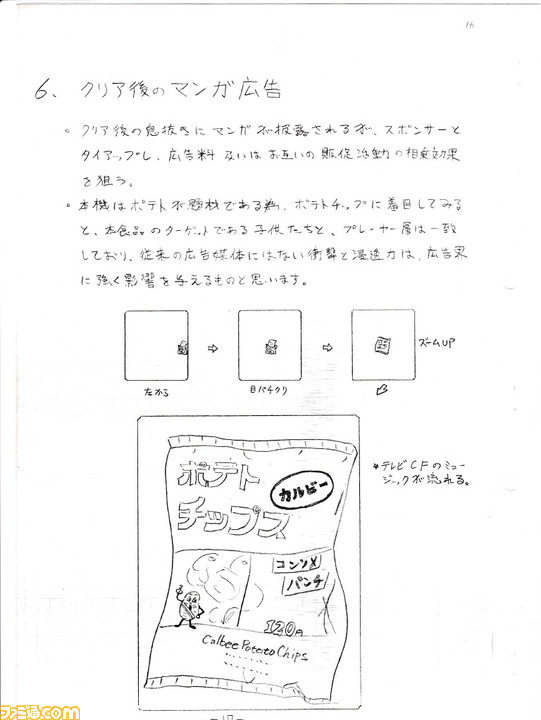 16
6、クリア後のマンガ広告
。クリア後の息抜きにマンガが披露されるが、スポンサーと
タイアップし、広告料及いはお互いの販促活動の相乗効果
を狙う。
。本機はポテトが題材である為、ポテトチップに着目してみる
と、本食品のターゲットである子供たちと、プレーヤー層は一致
しており、従来の広告媒体にはない衝撃と浸透力は、広告界
に強く影響を与えるものと思います。
⇨ ⇨ ズームUP
左から 目パチクリ
ポテト
チップス
カルビー
コンソメ
パンチ
120円
Calbee Poteto Chips
*テレビCFのミュー
ジックが流れる。
-17-
ファミ通.com